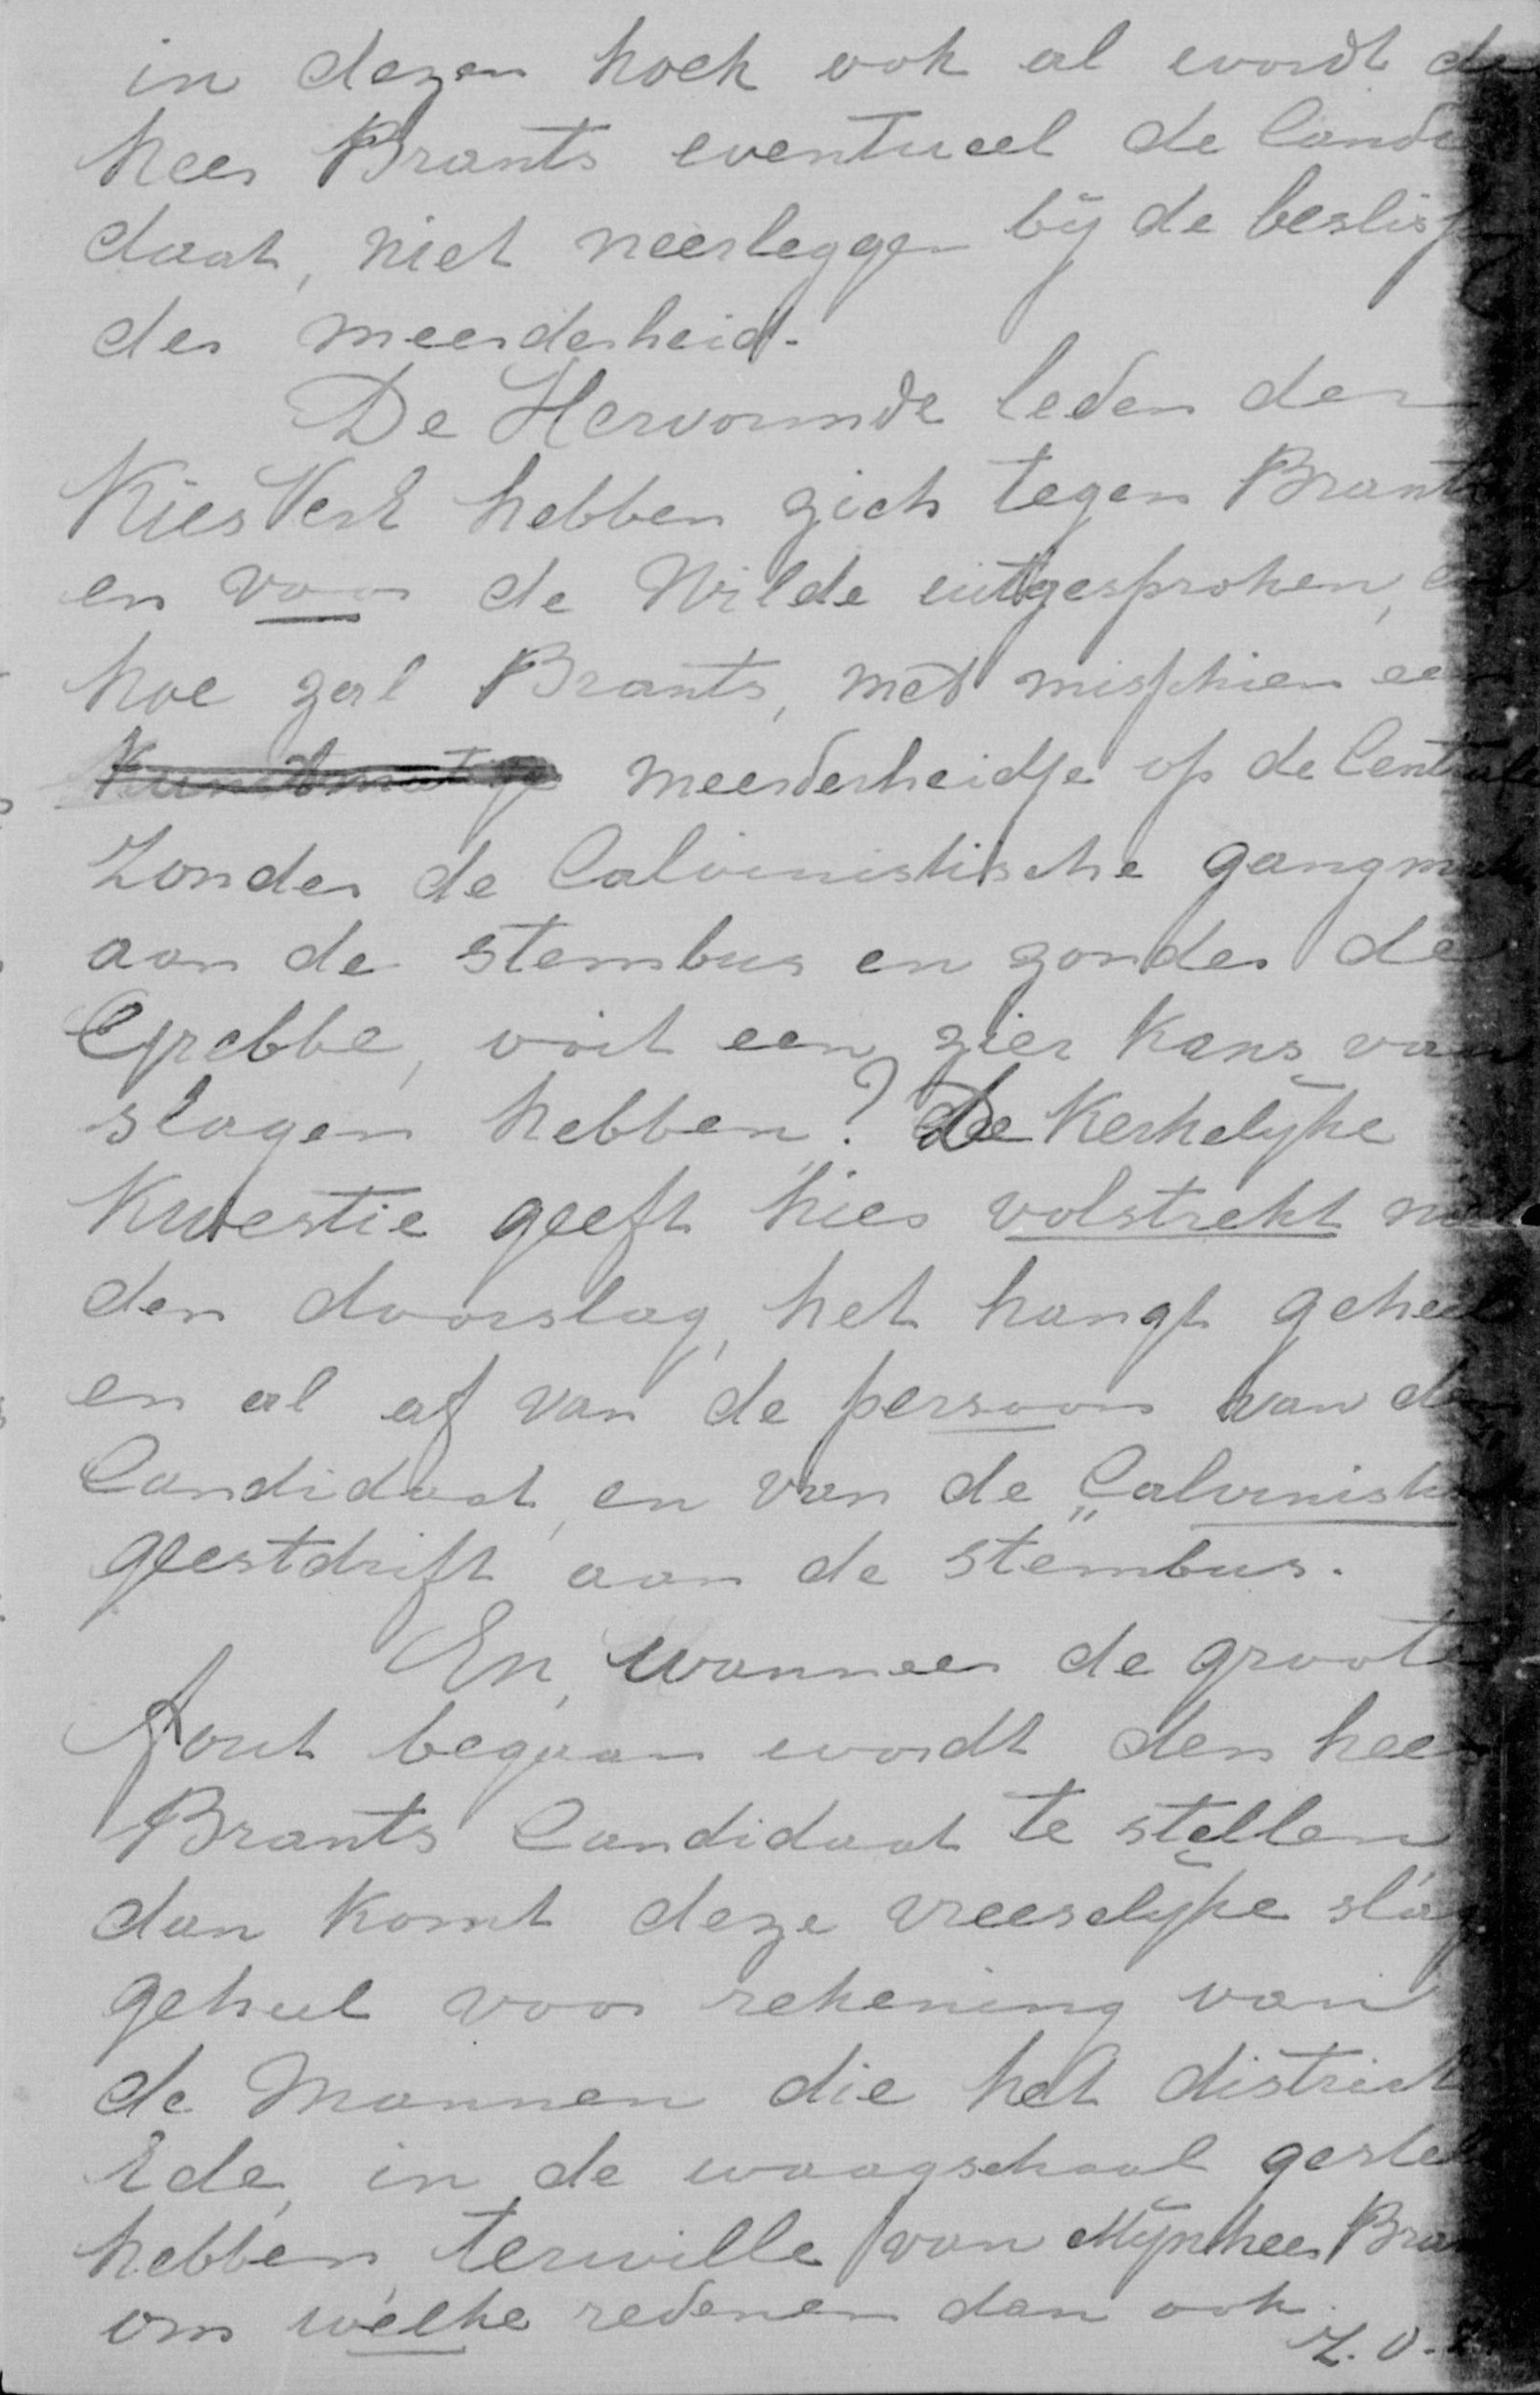 in dezen hoek ook al wordt de
heer Brants eventueel de Candi
daat, niet neerleggen bij de besliss
der meerderheid.
De Hervormde leden der
KiesVer hebben zich tegen Brants
en voor de Wilde uitgesproken, en
hoe zal Brants, met misschien een
Kunstmatige meerderheidje op de Centrale
Zonder de Calvinistische gangma
aan de stembus en zonder de
Grebbe, ooit een zier Kans van
slagen hebben? De Kerkelijke
Kwestie geeft hier volstrekt niet
den doorslag, het hangt geheel
en al af van de persoon van de
Candidaat, en van de „Calvinist
geestdrift aan de stembus.
En, wanneer de groote
fout begaan wordt den heer
Brants Candidaat te stellen
dan komt deze vreeselijke slag
geheel voor rekening van
de Mannen die het district
Ede, in de waagschaal gestel
hebben, terwille van Mijnheer Bran
om welke redenen dan ook.
Z.O.Z.